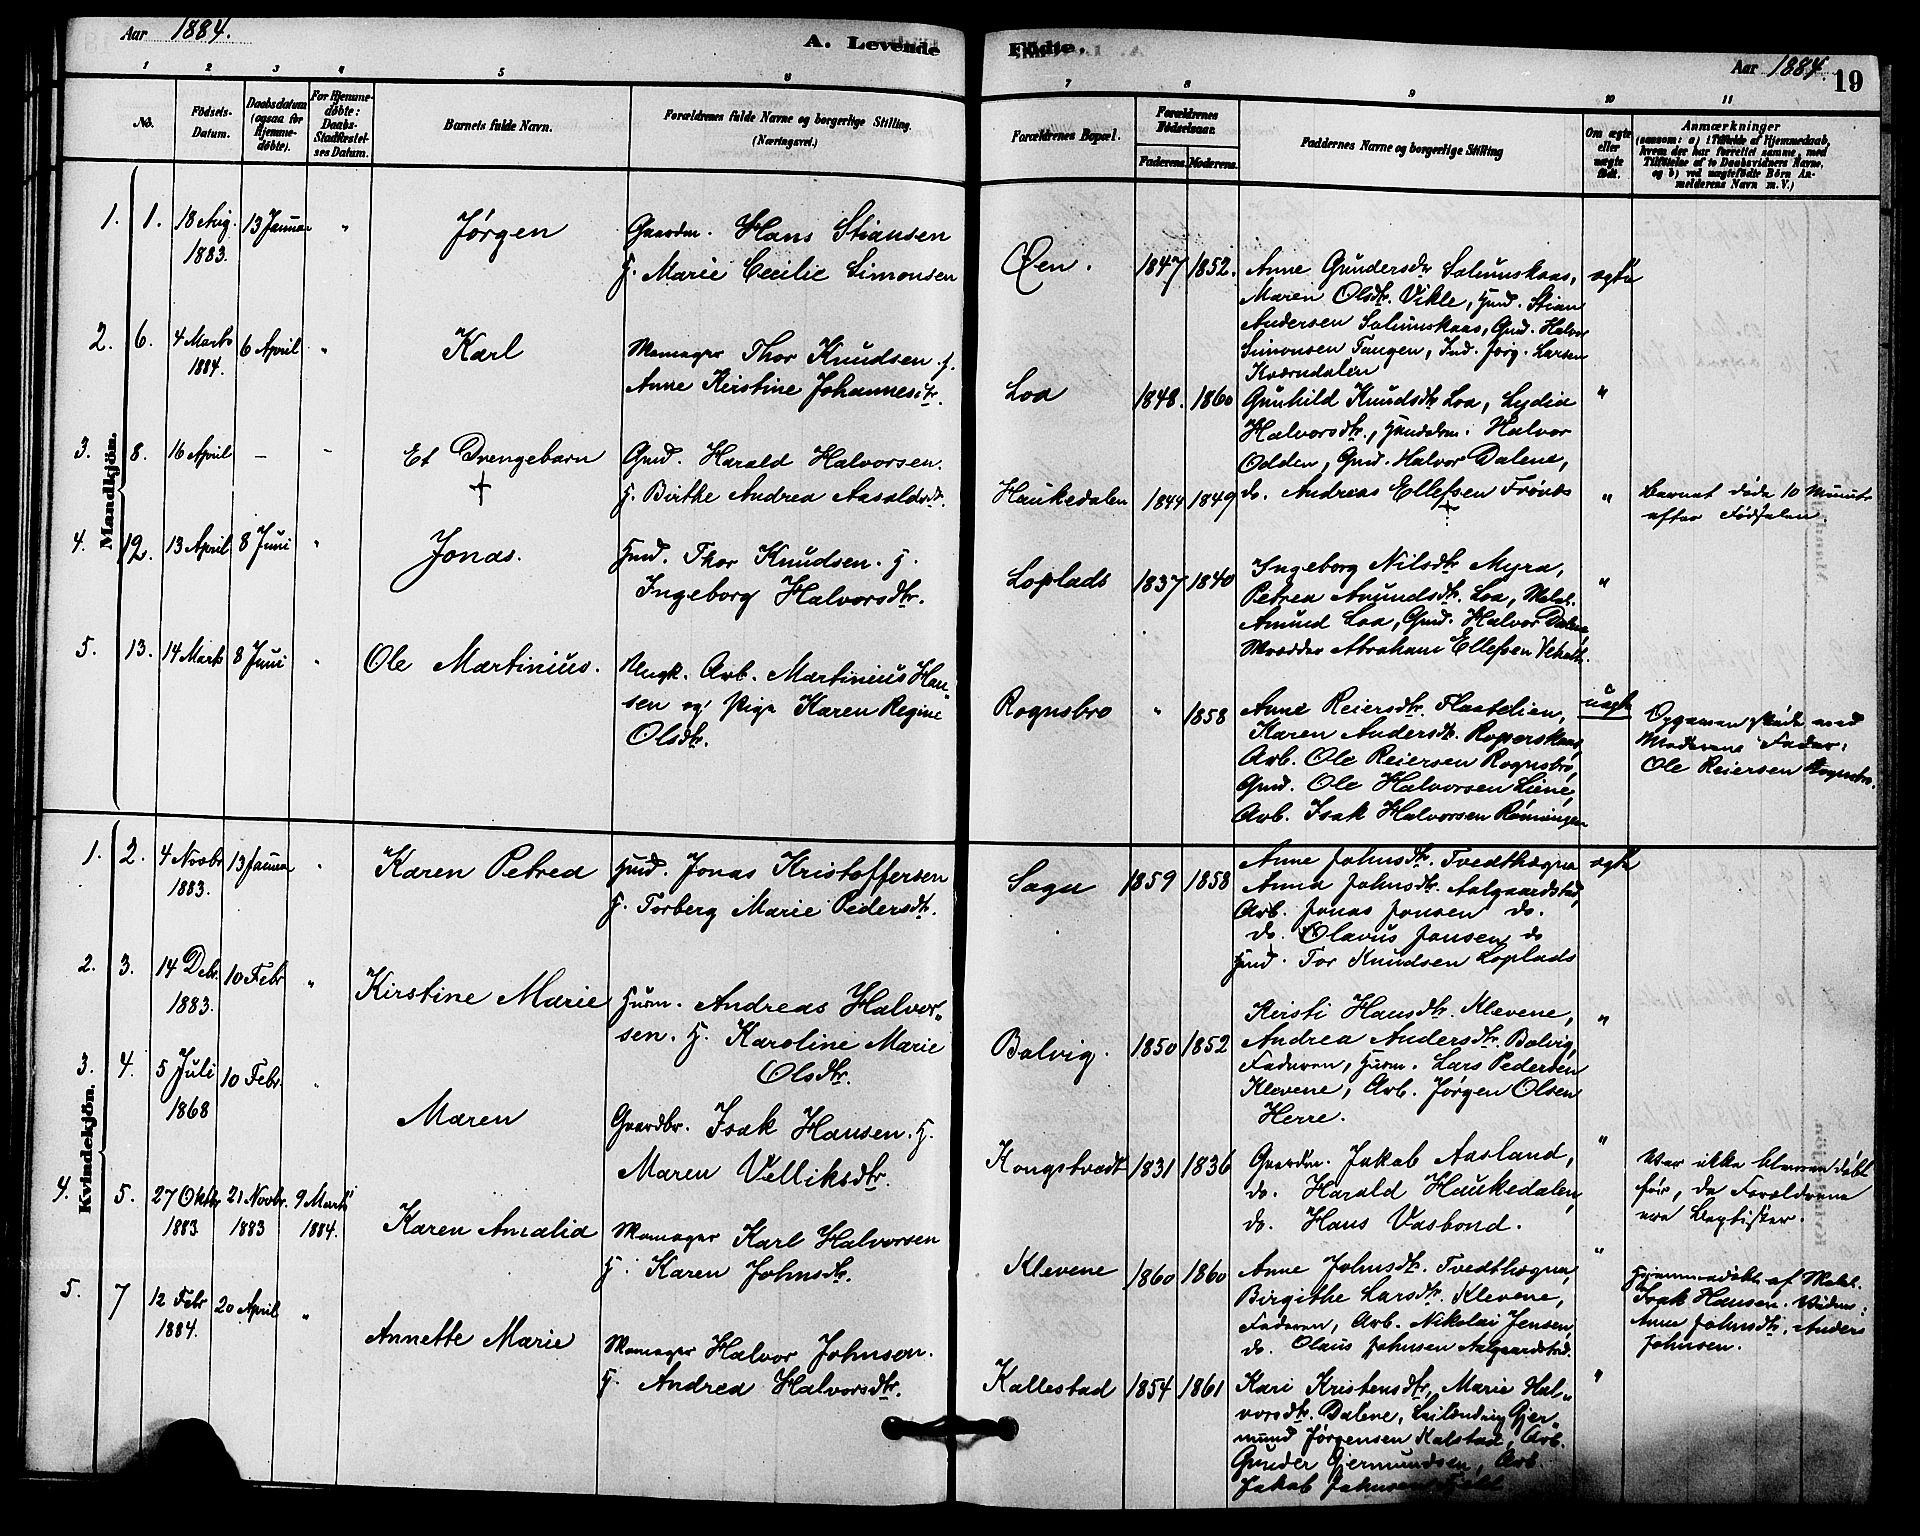 Aar 1884.
A. Levende Fødte.
Aar 1884. 19
1 2 3 4 5 6 7 8 9 10 11
No.
Fødsels-
Datum.
Daabsdatum
(ogsaa for
Hjemme-
døbte).
For Hjemme-
døbte:
Daabs-
Stadfæstel-
ses Datum.
Barnets fulde Navn.
Forældrenes fulde Navne og borgerlige Stilling.
(Næringsvei.)
Forældrenes Bopæl.
Forældrenes
Fødselsaar.
Faderens. Moderens.
Faddernes Navne og borgerlige Stilling
Om ægte
eller
uægte
født.
Anmærkninger
(saasom: a) i Tilfælde af Hjemmedaab,
hvem der har forrettet samme, med
Tilføielse af to Daabsvidners Navne,
og b) ved uægtefødte Børn An-
melderens Navn m. V.)
Mandkjön.
1. 1. 18 Aug. 13 Januar " Jørgen Gaardm. Hans Stiansen
1883. H. Marie Cecilie Simonsen
Øen. 1847 1852. Anne Gundersdtr Salumskaas, ægte
Maren Olsdtr. Vikle, Hmd. Stian
Andersen Salumskaas, Gmd. Halvor
Simonsen Tangen, Ind. Jørg. Larsen
Kværndalen
2. 6. 4 Marts 6 April " Karl Momager Thor Knudsen. H.
1884. Anne Kirstine Johannesdtr.
Loa 1848. 1860 Gunhild Knudsdtr Loa, Lydia "
Halvorsdtr., Halvor
Odden, Gmd. Halvor Dalene,
do. Andreas Ellefsen Frønes
3. 8. 16 April — - Et Drengebarn Gmd. Harald Halvorsen.
H. Birthe Andrea Aasoldsdtr.
Haukedalen 1844 1849 " Barnet døde 10 Minuter
efter Fødselen.
4. 12. 13 April 8 Juni " Jonas. Hmd. Thor Knudsen. H.
Ingeborg Halvorsdtr.
Loplads 1837 1840 Ingeborg Nilsdtr Myra, "
Petrea Amundsdtr. Loa,
Amund Loa, Gmd. Halvor Dalene,
Abraham Ellefsen
5. 13. 14 Marts 8 Juni " Ole Martinius. Ungk. Arb. Martinius Han-
sen og Pige Karen Regine
Olsdtr.
Rognsbro " 1858 Anne Reiersdtr. Flaatelien, uægte
Karen Andersdtr. Roperskaas,
Arb. Ole Reiersen Rognsbro,
Gmd. Ole Halvorsen Liene,
Arb. Isak Halvorsen Rønningen
Opgaven skede ved
Moderens Fader:
Ole Reiersen Rognsbro.
Kvindekjön.
1. 2. 4 Novbr 13 Januar " Karen Petrea Hmd. Jonas Kristoffersen
1883. H. Torberg Marie Pedersdtr.
Sagen 1859 1858 Anne Johnsdtr. Tvedthægna ægte
Anna Johnsdtr. Aalgaardstad,
Arb. Jonas Jonsen do.
do. Olavus Jonsen do
Hmd. Tor Knudsen Loplads
2. 3. 14 Debr. 10 Febr " Kirstine Marie Husm. Andreas Halvor-
1883. sen. H. Karoline Marie
Olsdtr.
Bolvig. 1850 1852 Kirsti Hansdtr. Klevene, "
Andrea Andersdtr. Bolvig,
Faderen, Husm. Lars Pedersen
Klevene, Arb. Jørgen Olsen
Herre.
3. 4. 5 Juli 10 Febr. " Maren Gaardbr. Isak Hansen. H.
1868 Maren Velliksdtr.
Kongstvedt 1831 1836 Gaardm. Jakob Aasland, "
do. Harald Haukedalen,
do. Hans Vasbond.
Var ikke bleven døbt
før, da Forældrene
ere Baptister.
4. 5. 27 Oktbr 21 Novbr. 9 Marts Karen Amalia Momager Karl Halvorsen
1883 1883 1884. H. Karen Johnsdtr.
Klevene 1860 1860 Anne Johnsdtr. Tvedthægna, "
Birgithe Larsdtr. Klevene,
Faderen, Arb. Nikolai Jensen,
do. Olaus Johnsen Aalgaardstad.
Hjemmedøbt af
Isak Hansen. Vidner:
Anne Johnsdtr., Anders
Johnsen.
5. 7 12 Febr 20 April " Annette Marie Momager Halvor Johnson.
1884. H. Andrea Halvorsdtr.
Kallestad 1854 1861 Kari Kristensdtr, Marie Hal- "
vorsdtr. Dalene, Leilænding Gjer-
mund Jørgensen Kalstad, Arb.
Gunder Gjermundsen, Arb.
Jakob Johnsen